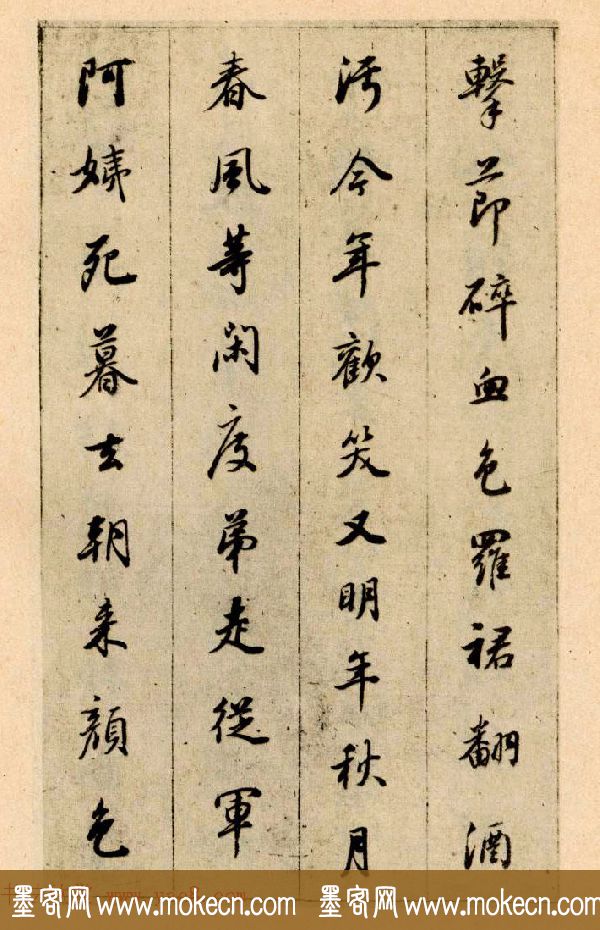 擊節碎血色羅裙翻酒
污今年歡笑又明年秋月
春風等閑度弟走從軍
阿姨死暮去朝来顏色
墨客网 www.mokecn.com 墨客网 www.mokecn.com